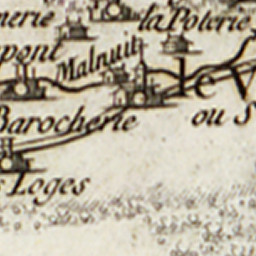 nerie
la Poterie
pont
Malnuit
le V
Barocherie
ou S
s Loges